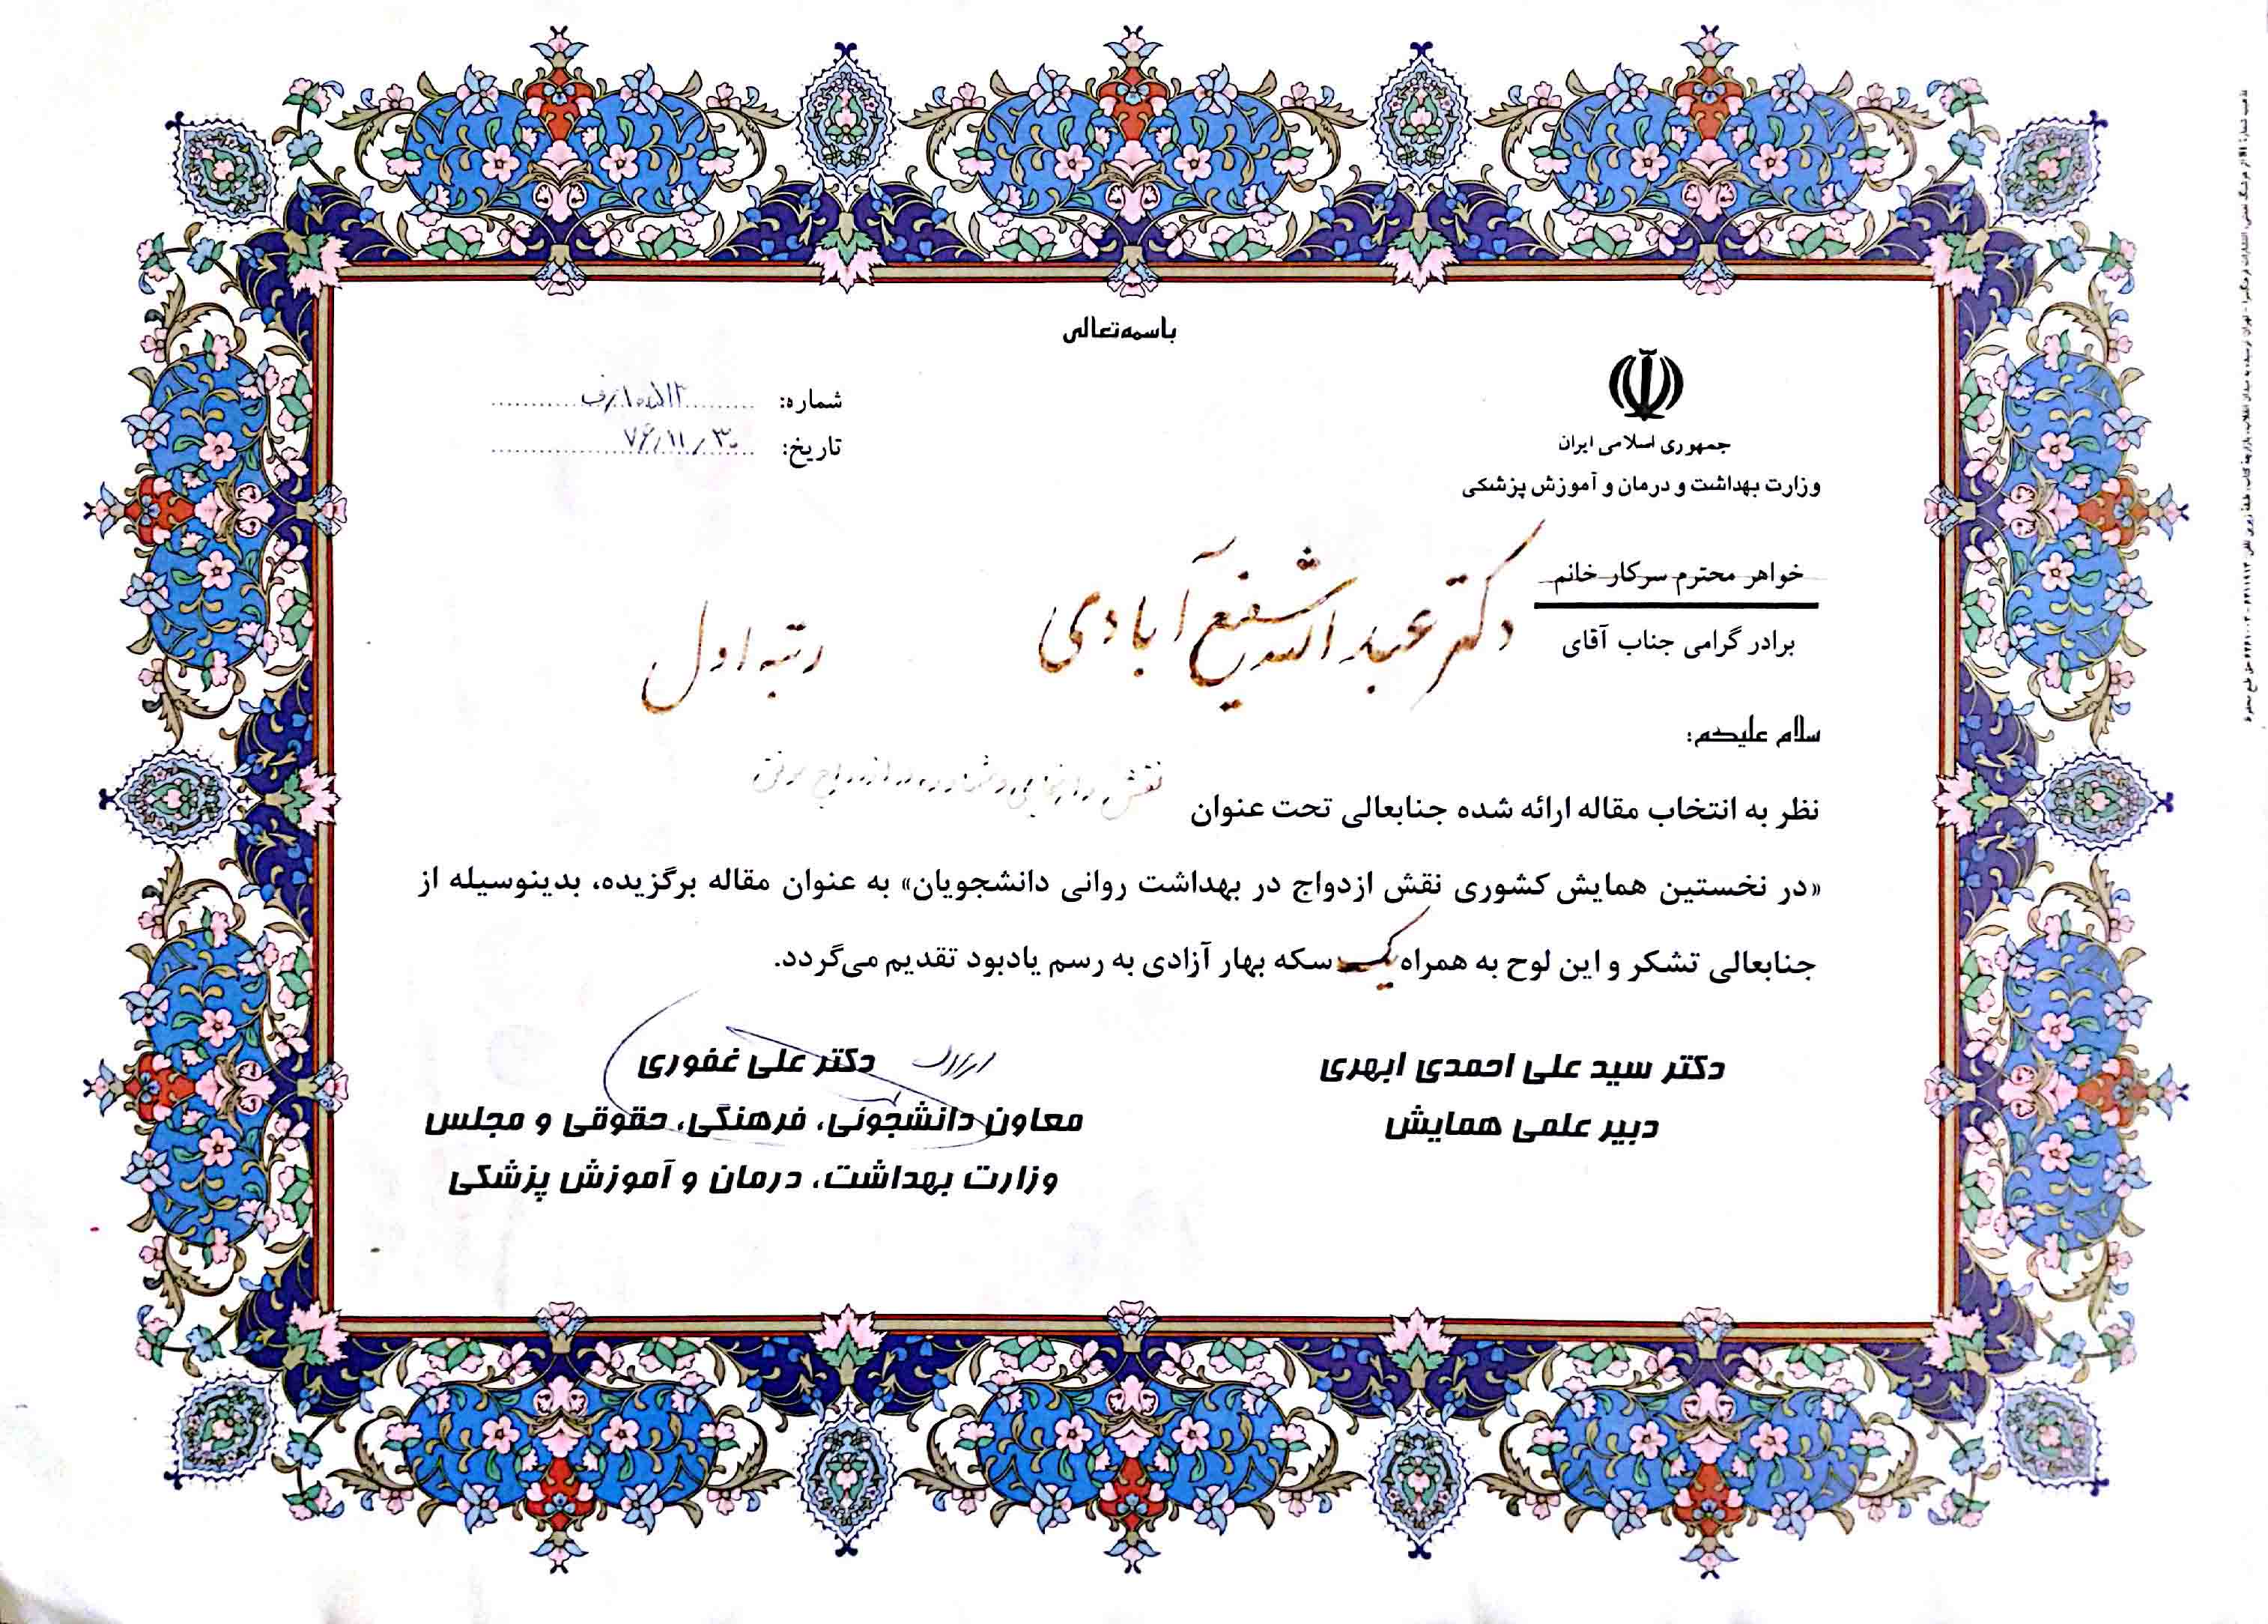 باسمه‌تعالی
جمهوری اسلامی ایران
وزارت بهداشت و درمان و آموزش پزشکی
شماره:
تاریخ: ۷۶/۱۱/۳۰
خواهر محترم سرکار خانم
برادر گرامی جناب آقای دکتر عبدالله شفیع آبادی رتبه اول
سلام علیکم:
نظر به انتخاب مقاله ارائه شده جنابعالی تحت عنوان نقش راهنمایی و مشاوره در ازدواج موفق
«در نخستین همایش کشوری نقش ازدواج در بهداشت روانی دانشجویان» به عنوان مقاله برگزیده، بدینوسیله از
جنابعالی تشکر و این لوح به همراه یک سکه بهار آزادی به رسم یادبود تقدیم می‌گردد.
دکتر سید علی احمدی ابهری
دبیر علمی همایش
دکتر علی غفوری
معاون دانشجوئی، فرهنگی، حقوقی و مجلس
وزارت بهداشت، درمان و آموزش پزشکی